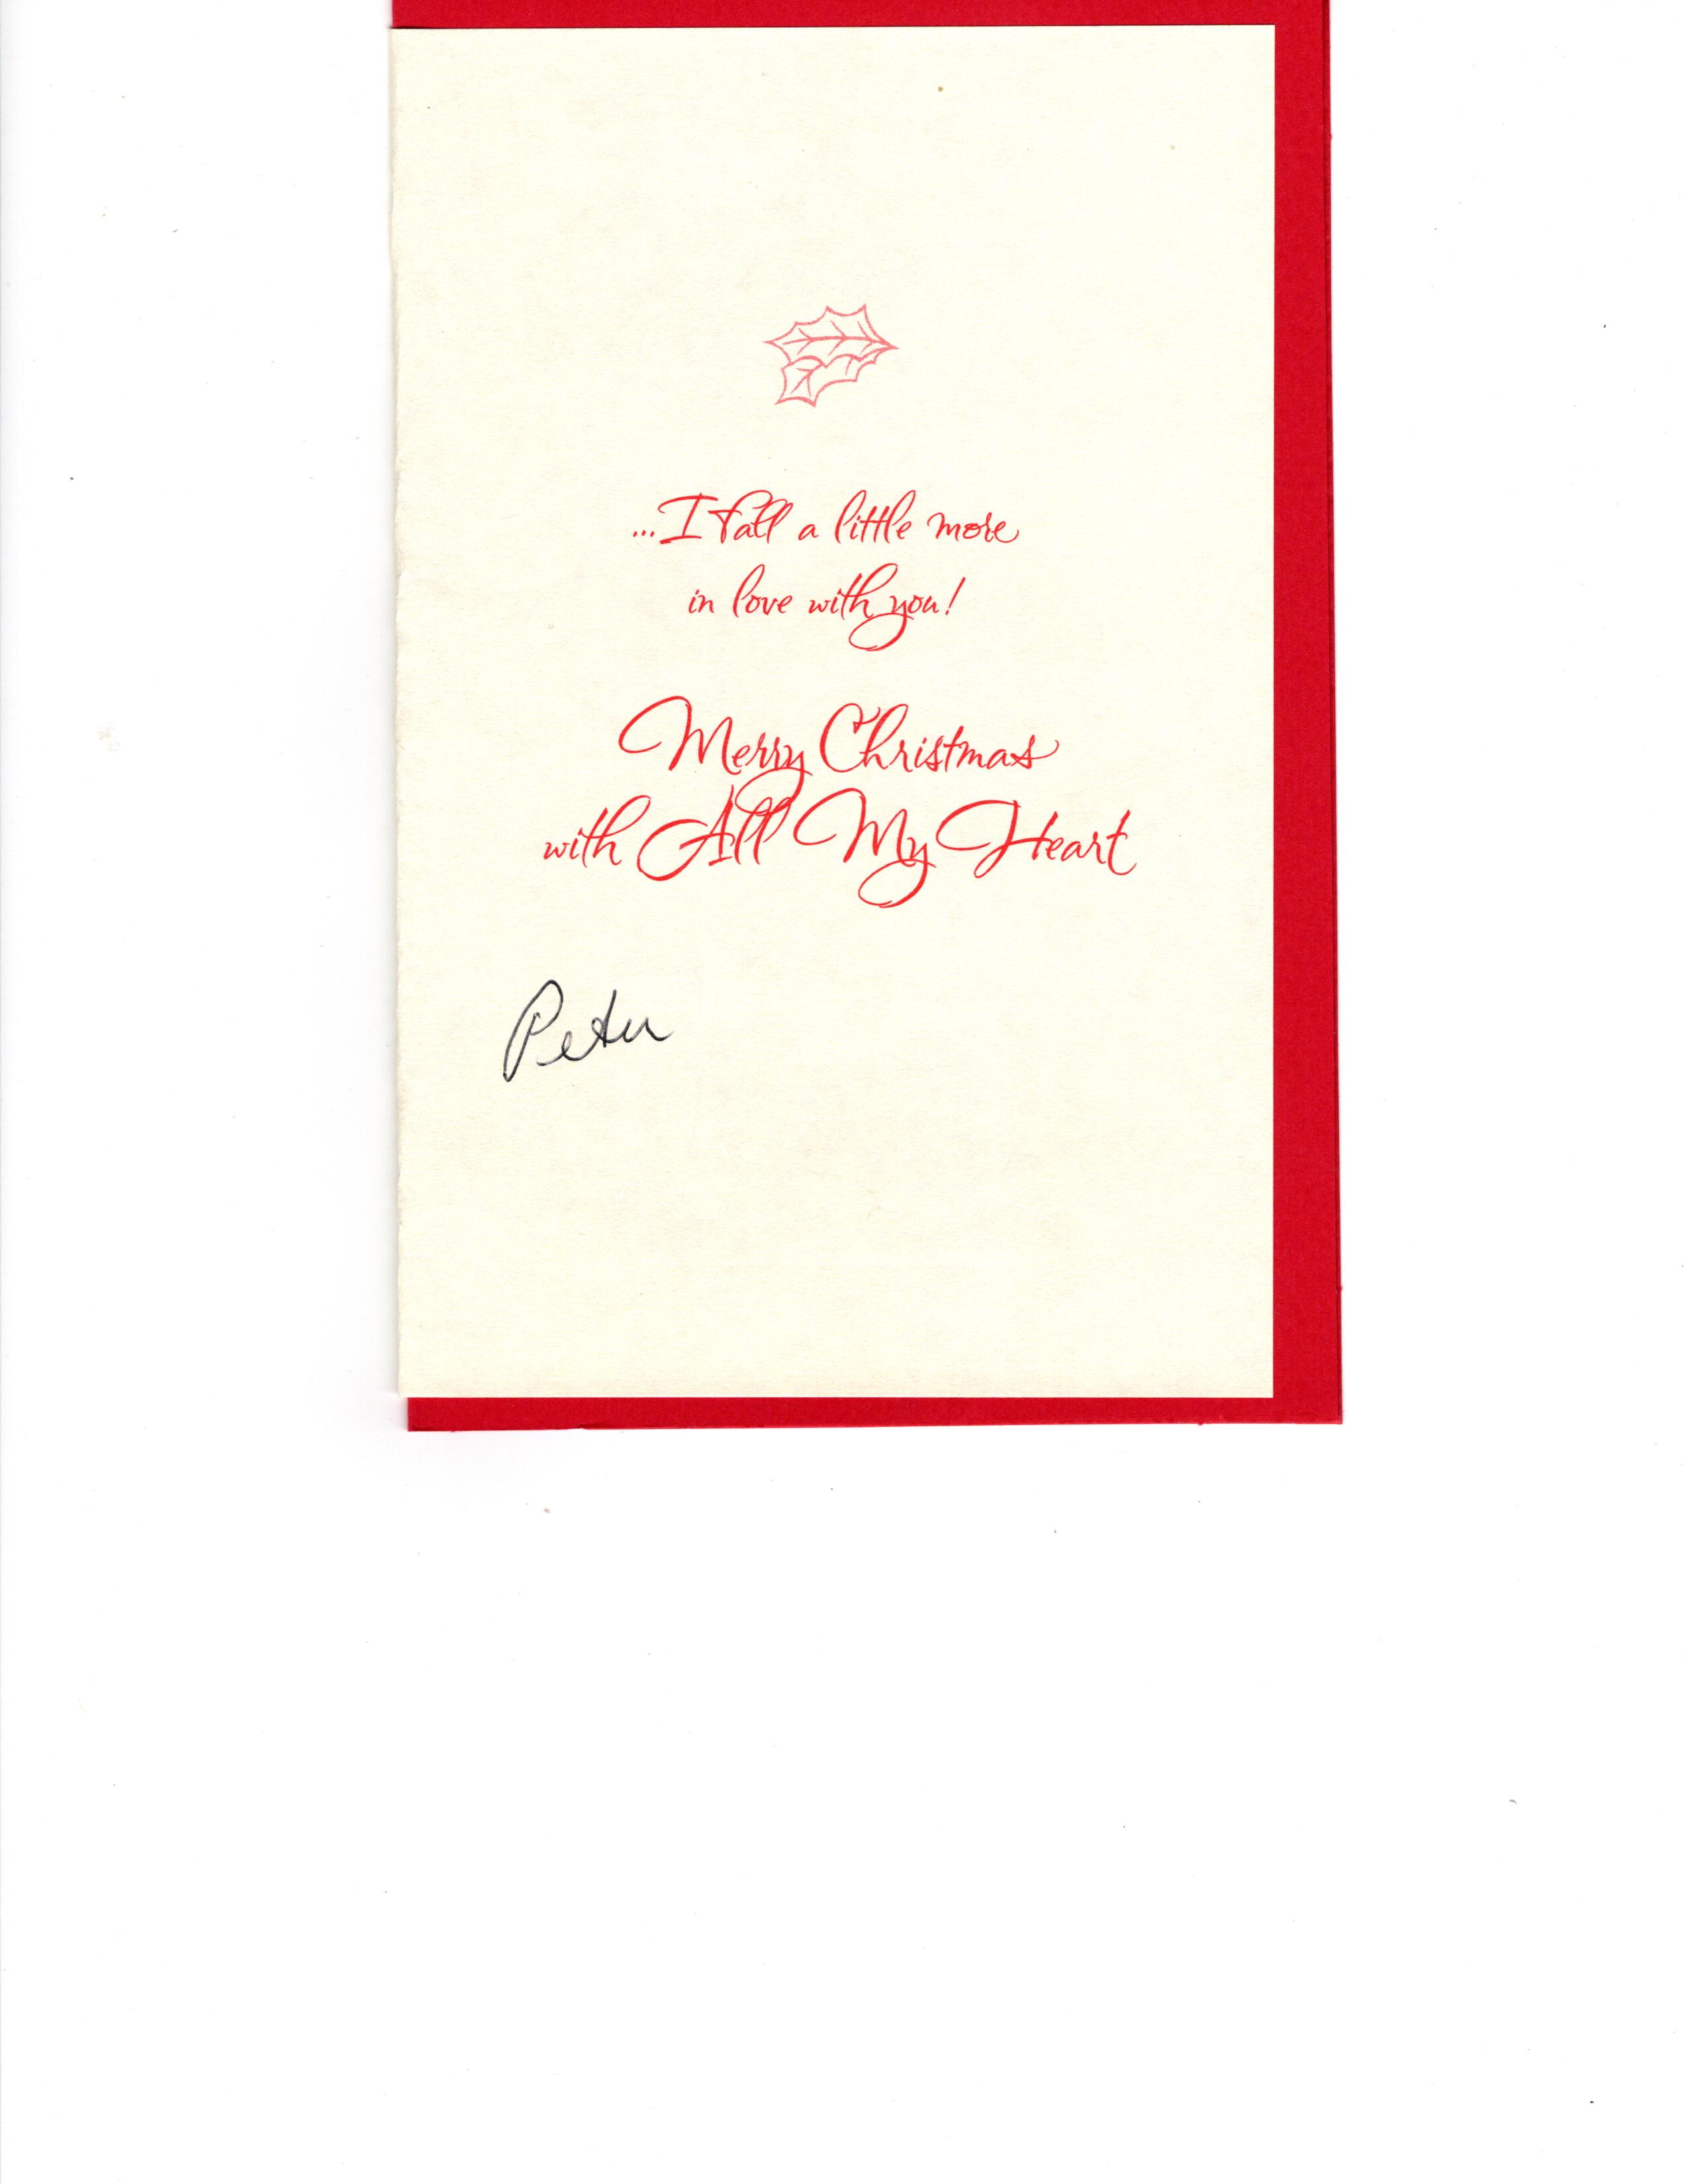 ...I fall a little more
in love with you!
Merry Christmas
with All My Heart
Peter